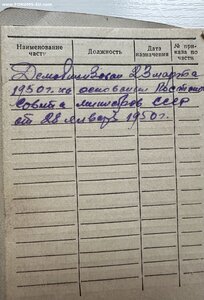 Наименование части
Должность
Дата назначения
№ приказа по части
Демобилизован 23 марта
1950 г. на основании Постанов
Совета министров СССР
от 28 января 1950 г.